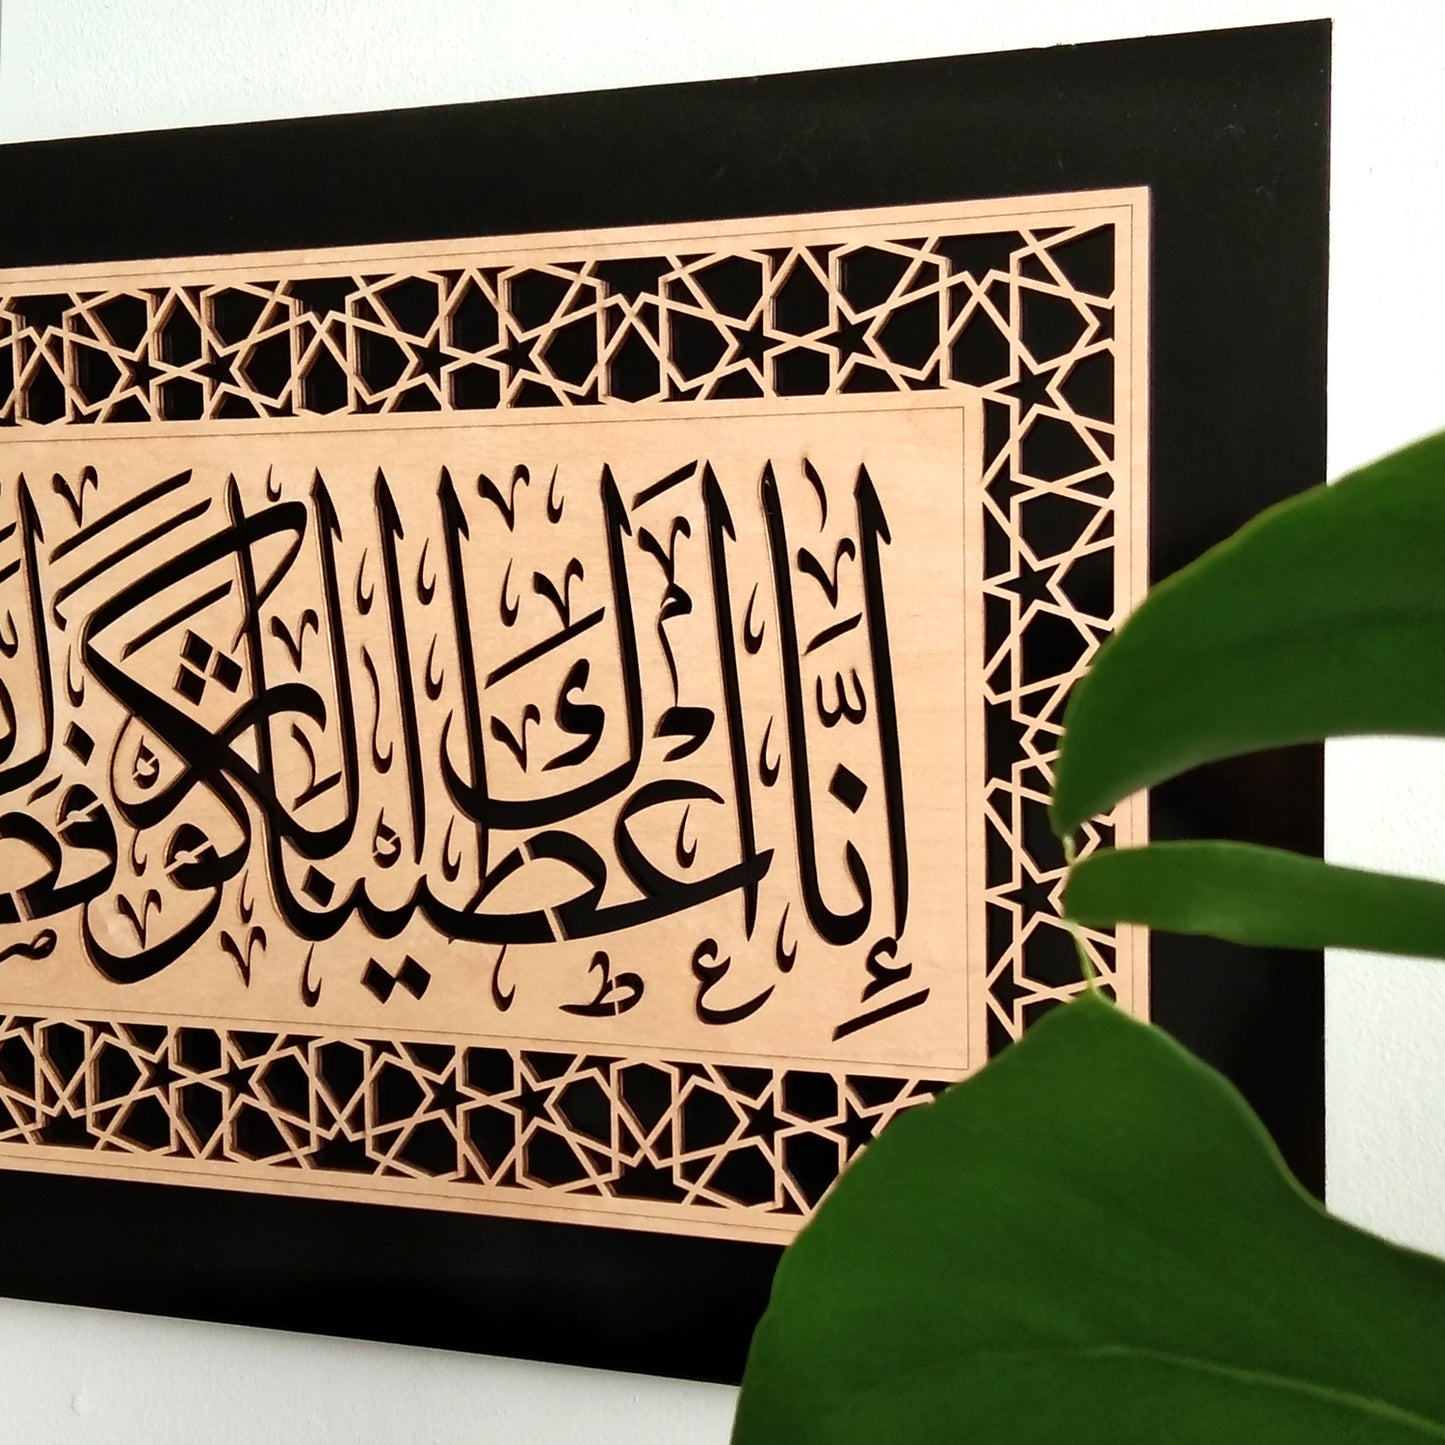 إنا أعطيناك الكوثر